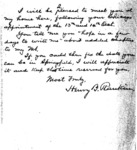 I will be pleased to meet you at
my home here, following your Chicago
appointment of the 15th and 16th Inst.
You tell me you "hope in a few
days to write me" about
to my
If you could then fix the date you
can be in Springfield, I will appreciate
it and keep this time reserved for you.
Most Truly,
Henry B. Rankin